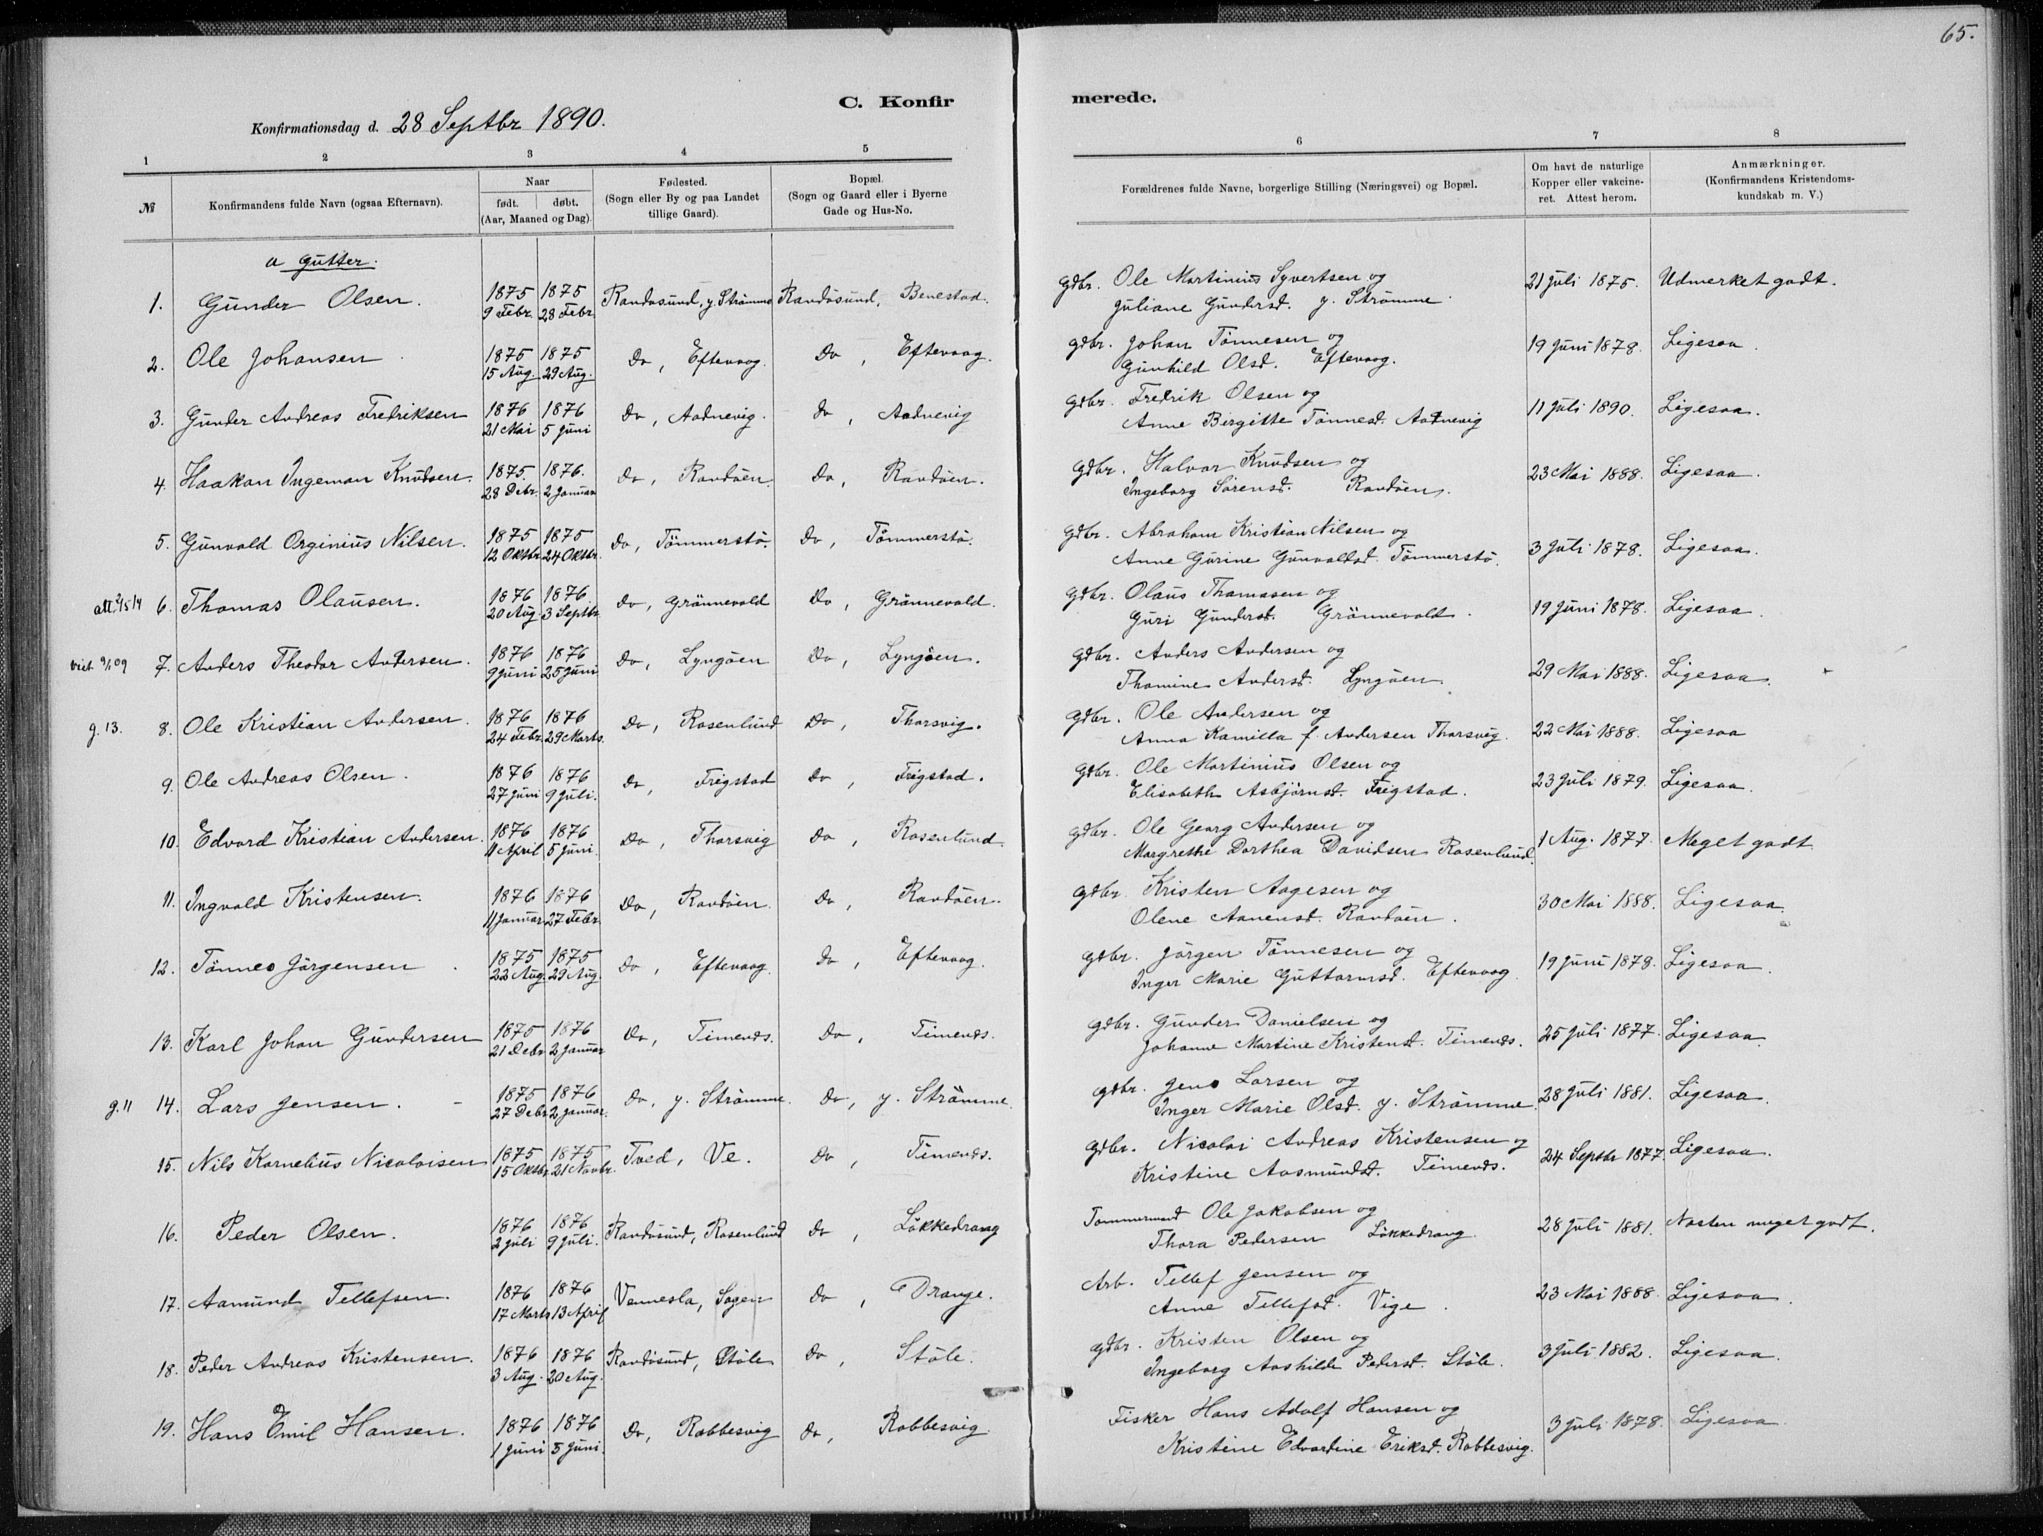 65.
C. Konfir merede.
Konfirmationsdag d. 28 Septbr 1890.
1 2 3 4 5 6 7 8
№ Konfirmandens fulde Navn (ogsaa Efternavn). Naar født. døbt. (Aar, Maaned og Dag). Fødested. (Sogn eller By og paa Landet tillige Gaard). Bopæl. (Sogn og Gaard eller i Byerne Gade og Hus-No. Forældrenes fulde Navne, borgerlige Stilling (Næringsvei) og Bopæl. Om havt de naturlige Kopper eller vakcineret. Attest herom. Anmærkninger. (Konfirmandens Kristendomskundskab m. V.)
a Gutter.
1. Gunder Olsen. 1875 9 Febr. 1875 28 Febr. Randøsund, y. Strømme Randøsund, Benestad. Gdbr. Ole Martinius Syvertsen og
Juliane Gundersd. y. Strømme. 21 Juli 1875. Udmerket godt.
2. Ole Johansen 1875 15 Aug. 1875 29 Aug. Do, Eftevaag. Do, Eftevaag. Gdbr. Johan Tønnesen og
Gunhild Olsd. Eftevaag. 19 Juni 1878. Ligesaa.
3. Gunder Andreas Fredriksen 1876 21 Mai 1876 5 Juni Do, Aadnevig. Do, Aadnevig Gdbr. Fredrik Olsen og
Anne Bergitte Tønnesd. Aadnevig 11 Juli 1890. Ligesaa.
4. Haakon Ingeman Knudsen. 1875. 28 Debr. 1876. 2 Januar Do, Randøen. Do, Randøen. Gdbr. Halvor Knudsen og
Ingeborg Sørensd. Randøen. 23 Mai 1888. Ligesaa.
5. Gunvald Orginius Nilsen. 1875 12 Oktbr. 1875 24 Oktbr. Do, Tømmerstø. Do, Tømmerstø. Gdbr. Abraham Kristian Nilsen og
Anne Gurine Gunvaldsd. Tømmerstø. 3 Juli 1878. Ligesaa.
att. 2/5 14 6. Thomas Olausen. 1876 20 Aug. 1876. 3 Septbr. Do, Grønnevold Do, Grønnevold. Gdbr. Olaus Thomasen og
Guri Gundersd. Grønnevold. 19 Juni 1878. Ligesaa.
7. Anders Theodor Andersen. 1876 9 Juni 1876 25 Juni Do, Lyngøen Do, Lyngøen. Gdbr. Anders Andersen og
Thomine Andersd. Lyngøen. 29 Mai 1888. Ligesaa.
g. 13. 8. Ole Kristian Andersen. 1876 24 Febr. 1876 29 Marts. Do, Rosenlund Do, Thorsvig. Gdbr. Ole Andersen og
Anna Kamilla f. Andersen Thorsvig. 22 Mai 1888. Ligesaa
9. Ole Andreas Olsen. 1876 27 Juni 1876 9 Juli. Do, Frigstad Do, Frigstad. Gdbr. Ole Martinius Olsen og
Elisabeth Asbjørnsd. Frigstad. 23 Juli 1879. Ligesaa.
10. Edvard Kristian Andersen. 1876 11 April 1876 5 Juni. Do, Thorsvig Do, Rosenlund Gdbr. Ole Georg Andersen og
Margrethe Dorthea Davidsen Rosenlund. 1 Aug. 1877. Meget godt
11. Ingvald Kristensen. 1876 11 Januar 1876 27 Febr. Do, Randøen. Do, Randøen. Gdbr. Kristen Aagesen og
Olene Aanensd. Randøen. 30 Mai 1888. Ligesaa.
12. Tønnes Jørgensen. 1875 22 Aug. 1875 29 Aug. Do, Eftevaag. Do, Eftevaag. Gdbr. Jørgen Tønnesen og
Inger Marie Guttormsd. Eftevaag. 19 Juni 1878. Ligesaa.
13. Karl Johan Gundersen 1875 21 Debr. 1876 2 Januar Do, Timends. Do, Timends. Gdbr. Gunder Danielsen og
Johanne Martine Kristensd. Timends. 25 Juli 1877. Ligesaa.
g. 11 14. Lars Jensen. 1875 27 Debr. 1876 2 Januar. Do, y. Strømme. Do, y. Strømme. Gdbr. Jens Larsen og
Inger Marie Olsd. y. Strømme. 28 Juli 1881. Ligesaa.
15. Nils Kornelius Nicolaisen 1875 15 Oktbr. 1875 21 Novbr. Tved, Ve. Do, Timends. Gdbr. Nicolai Andreas Kristensen og
Kristine Aasmundsd. Timends. 24 Septbr 1877. Ligesaa.
16. Peder Olsen. 1876 2 Juli 1876 9 Juli. Randøsund, Rosenlund Do, Løkkedrang Tømmermand Ole Jakobsen og
Thora Pedersen Løkkedrang. 28 Juli 1881. Næsten meget godt.
17. Aamund Tellefsen. 1876 17 Marts 1876 13 April Vennesla, Do, Drange. Arb. Tellef Jensen og
Anne Tellefsd. Vige. 23 Mai 1888. Ligesaa.
18. Peder Andreas Kristensen. 1876 3 Aug. 1876 20 Aug. Randøsund, Støle Do, Støle. Gdbr. Kristen Olsen og
Ingeborg Aashilde Pedersd. Støle. 3 Juli 1882. Ligesaa.
19. Hans Emil Hansen. 1876 1 Juni 1876 5 Juni. Do, Rabbesvig Do, Rabbesvig Fisker Hans Adolf Hansen og
Kristine Edvardine Eriksd. Rabbesvig. 3 Juli 1878. Ligesaa.